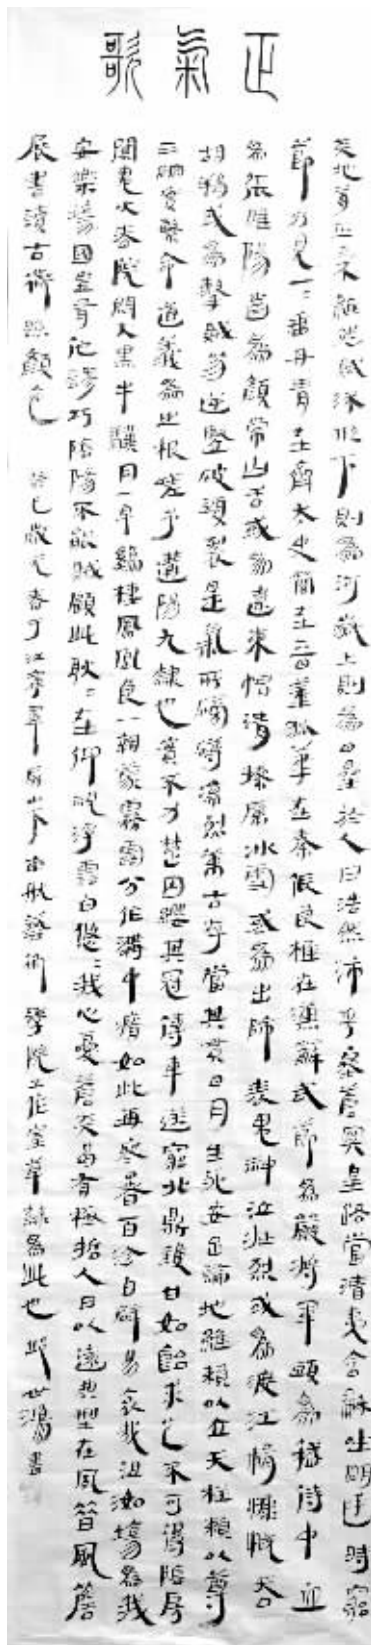 正氣歌
天地有正氣雜然賦流形下則為河嶽上則為日星於人曰浩然沛乎塞蒼冥皇路當清夷含龢吐明廷時窮
節乃見一一垂丹青在齊太史簡在晉董狐筆在秦張良椎在漢蘇武節為嚴將軍頭為嵇侍中血
為張睢陽齒為顏常山舌或為遼東帽清操厲冰雪或為出師表鬼神泣壯烈或為渡江楫慷慨吞
胡羯或為擊賊笏逆豎破頭裂是氣所磅礴凜烈萬古存當其貫日月生死安足論地維賴以立天柱賴以尊
三綱實繫命道義為之根嗟予遘陽九隸也實不力楚囚纓其冠傳車送窮北鼎鑊甘如飴求之不可得陰房
闃鬼火春院閟天黑牛驥同一皁雞棲鳳凰食一朝蒙霧露分作溝中瘠如此再寒暑百沴自辟易哀哉沮洳場為我
安樂場國豈有他繆巧陰陽不能賊顧此耿耿在仰視浮雲白悠悠我心憂蒼天曷有極哲人日以遠典型在夙昔風簷
展書讀古道照顏色 癸巳歲元春于江寧翠屏山下南航藝術學院工作室草隸為此也 邱世鴻書